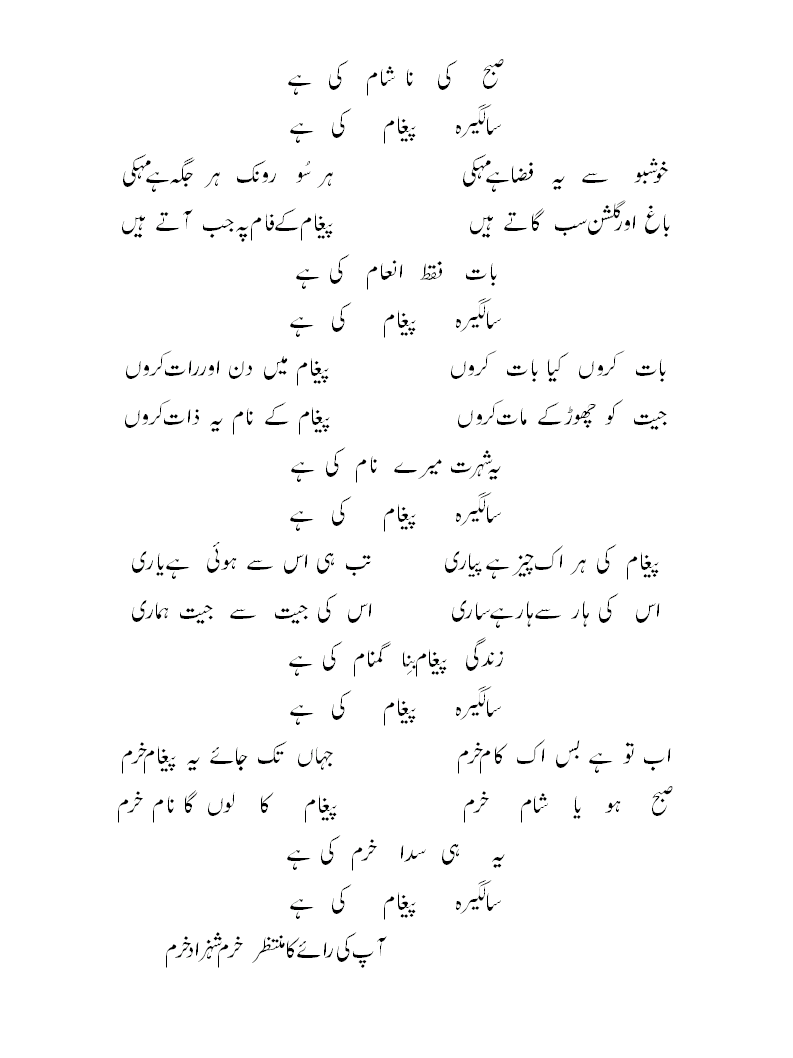 صبح کی نا شام کی ہے
سالگیرہ پیغام کی ہے
خوشبو سے یہ فضا ہے مہکی ہر سُو رونک ہر جگہ ہے مہکی
باغ اور گلشن سب گاتے ہیں پیغام کے فام پہ جب آتے ہیں
بات فقط انعام کی ہے
سالگیرہ پیغام کی ہے
بات کروں کیا بات کروں پیغام میں دن اور رات کروں
جیت کو چھوڑ کے مات کروں پیغام کے نام یہ ذات کروں
یہ شہرت میرے نام کی ہے
سالگیرہ پیغام کی ہے
پیغام کی ہر اک چیز ہے پیاری تب ہی اس سے ہوئی ہے یاری
اس کی ہار سے ہار ہے ساری اس کی جیت سے جیت ہماری
زندگی پیغام بِنا گمنام کی ہے
سالگیرہ پیغام کی ہے
اب تو ہے بس اک کام خرم جہاں تک جائے یہ پیغام خرم
صبح ہو یا شام خرم پیغام کا لوں گا نام خرم
یہ ہی سدا خرم کی ہے
سالگیرہ پیغام کی ہے
آپ کی رائے کا منتظر خرم شہزاد خرم